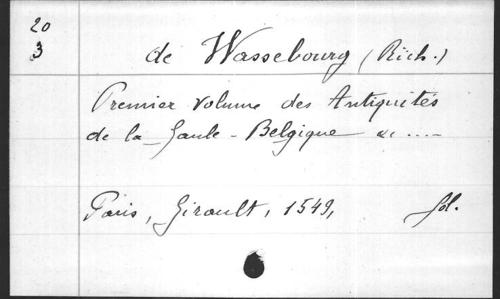 20
3
de Wassebourg (Rich.)
Premier volume des Antiquités
de la Gaule-Belgique &c ....
Paris, Girault, 1549, fol.